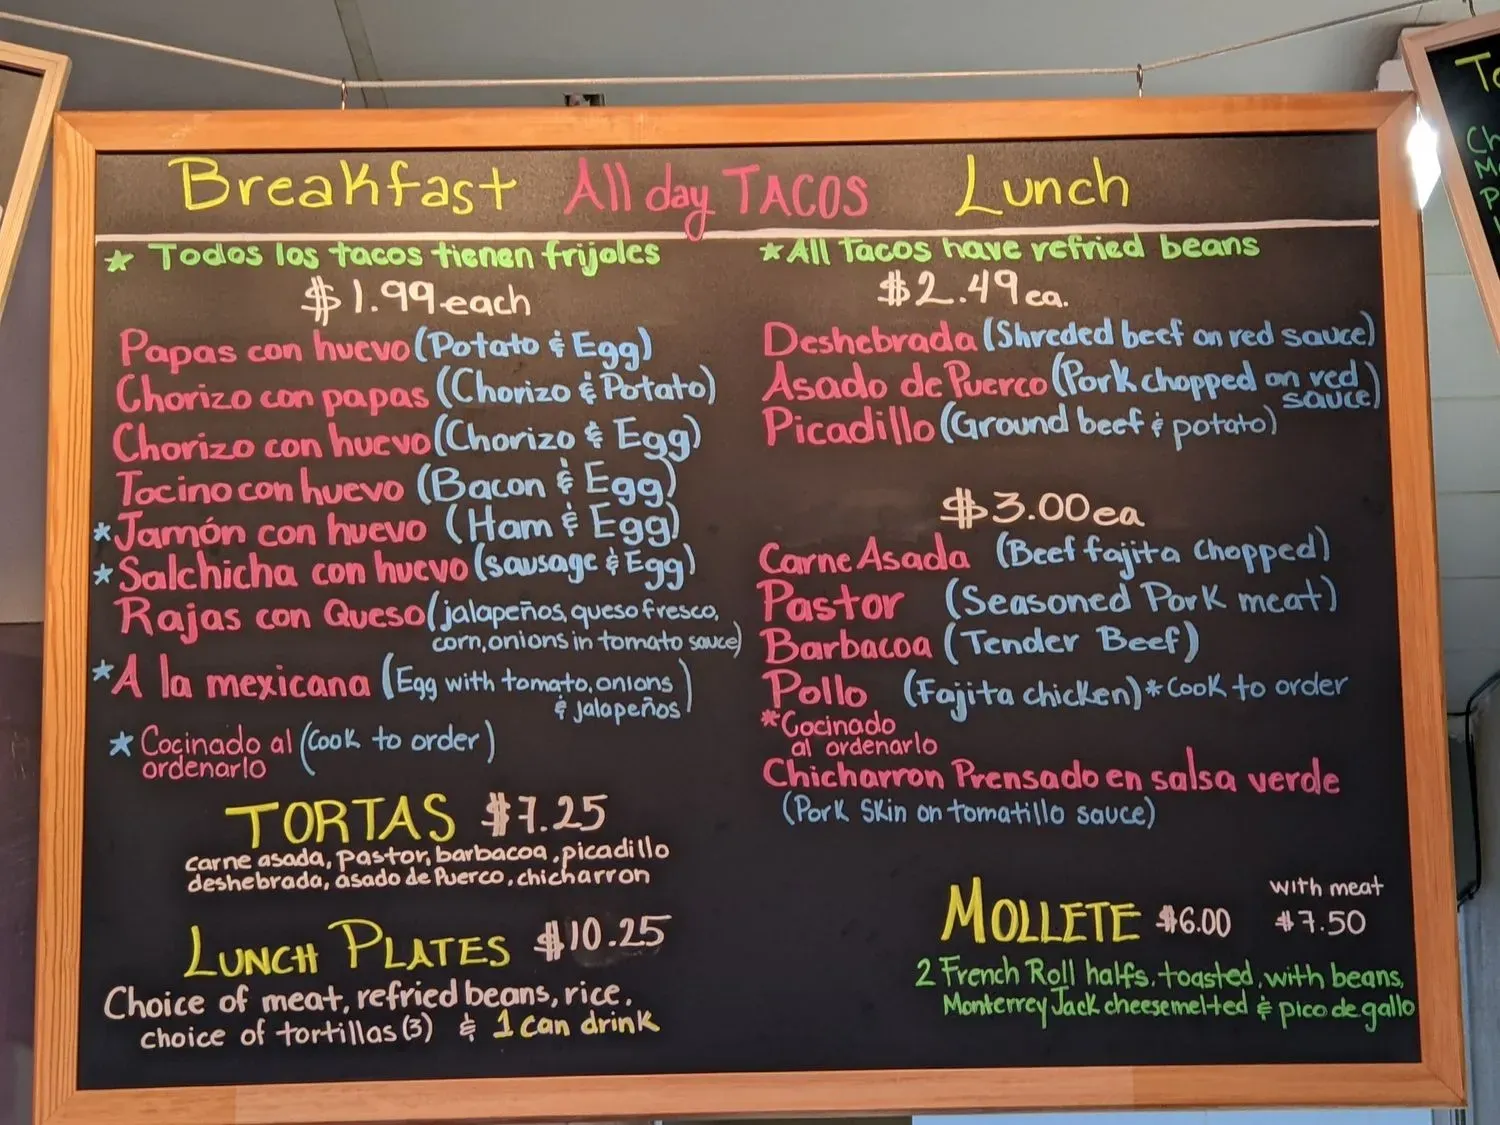 Breakfast All day TACOS Lunch
* Todos los tacos tienen frijoles
$1.99 each
Papas con huevo (Potato & Egg)
Chorizo con papas (Chorizo & Potato)
Chorizo con huevo (Chorizo & Egg)
Tocino con huevo (Bacon & Egg)
*Jamón con huevo (Ham & Egg)
*Salchicha con huevo (sausage & Egg)
Rajas con Queso (jalapeños, queso fresco,
corn, onions in tomato sauce)
*A la mexicana (Egg with tomato, onions
& jalapeños)
* Cocinado al (Cook to order)
ordenarlo
TORTAS $7.25
carne asada, pastor, barbacoa, picadillo
deshebrada, asado de Puerco, chicharron
LUNCH PLATES $10.25
Choice of meat, refried beans, rice,
choice of tortillas (3) & 1 can drink
*All Tacos have refried beans
$2.49 ea.
Deshebrada (Shreded beef on red sauce)
Asado de Puerco (Pork chopped on red
sauce)
Picadillo (Ground beef & potato)
$3.00 ea
Carne Asada (Beef fajita Chopped)
Pastor (Seasoned Pork meat)
Barbacoa (Tender Beef)
Pollo (Fajita chicken) *Cook to order
*Cocinado
al ordenarlo
Chicharron Prensado en salsa verde
(Pork Skin on tomatillo sauce)
with meat
MOLLETE $6.00 $7.50
2 French Roll halfs, toasted, with beans,
Monterrey Jack cheese melted & pico de gallo